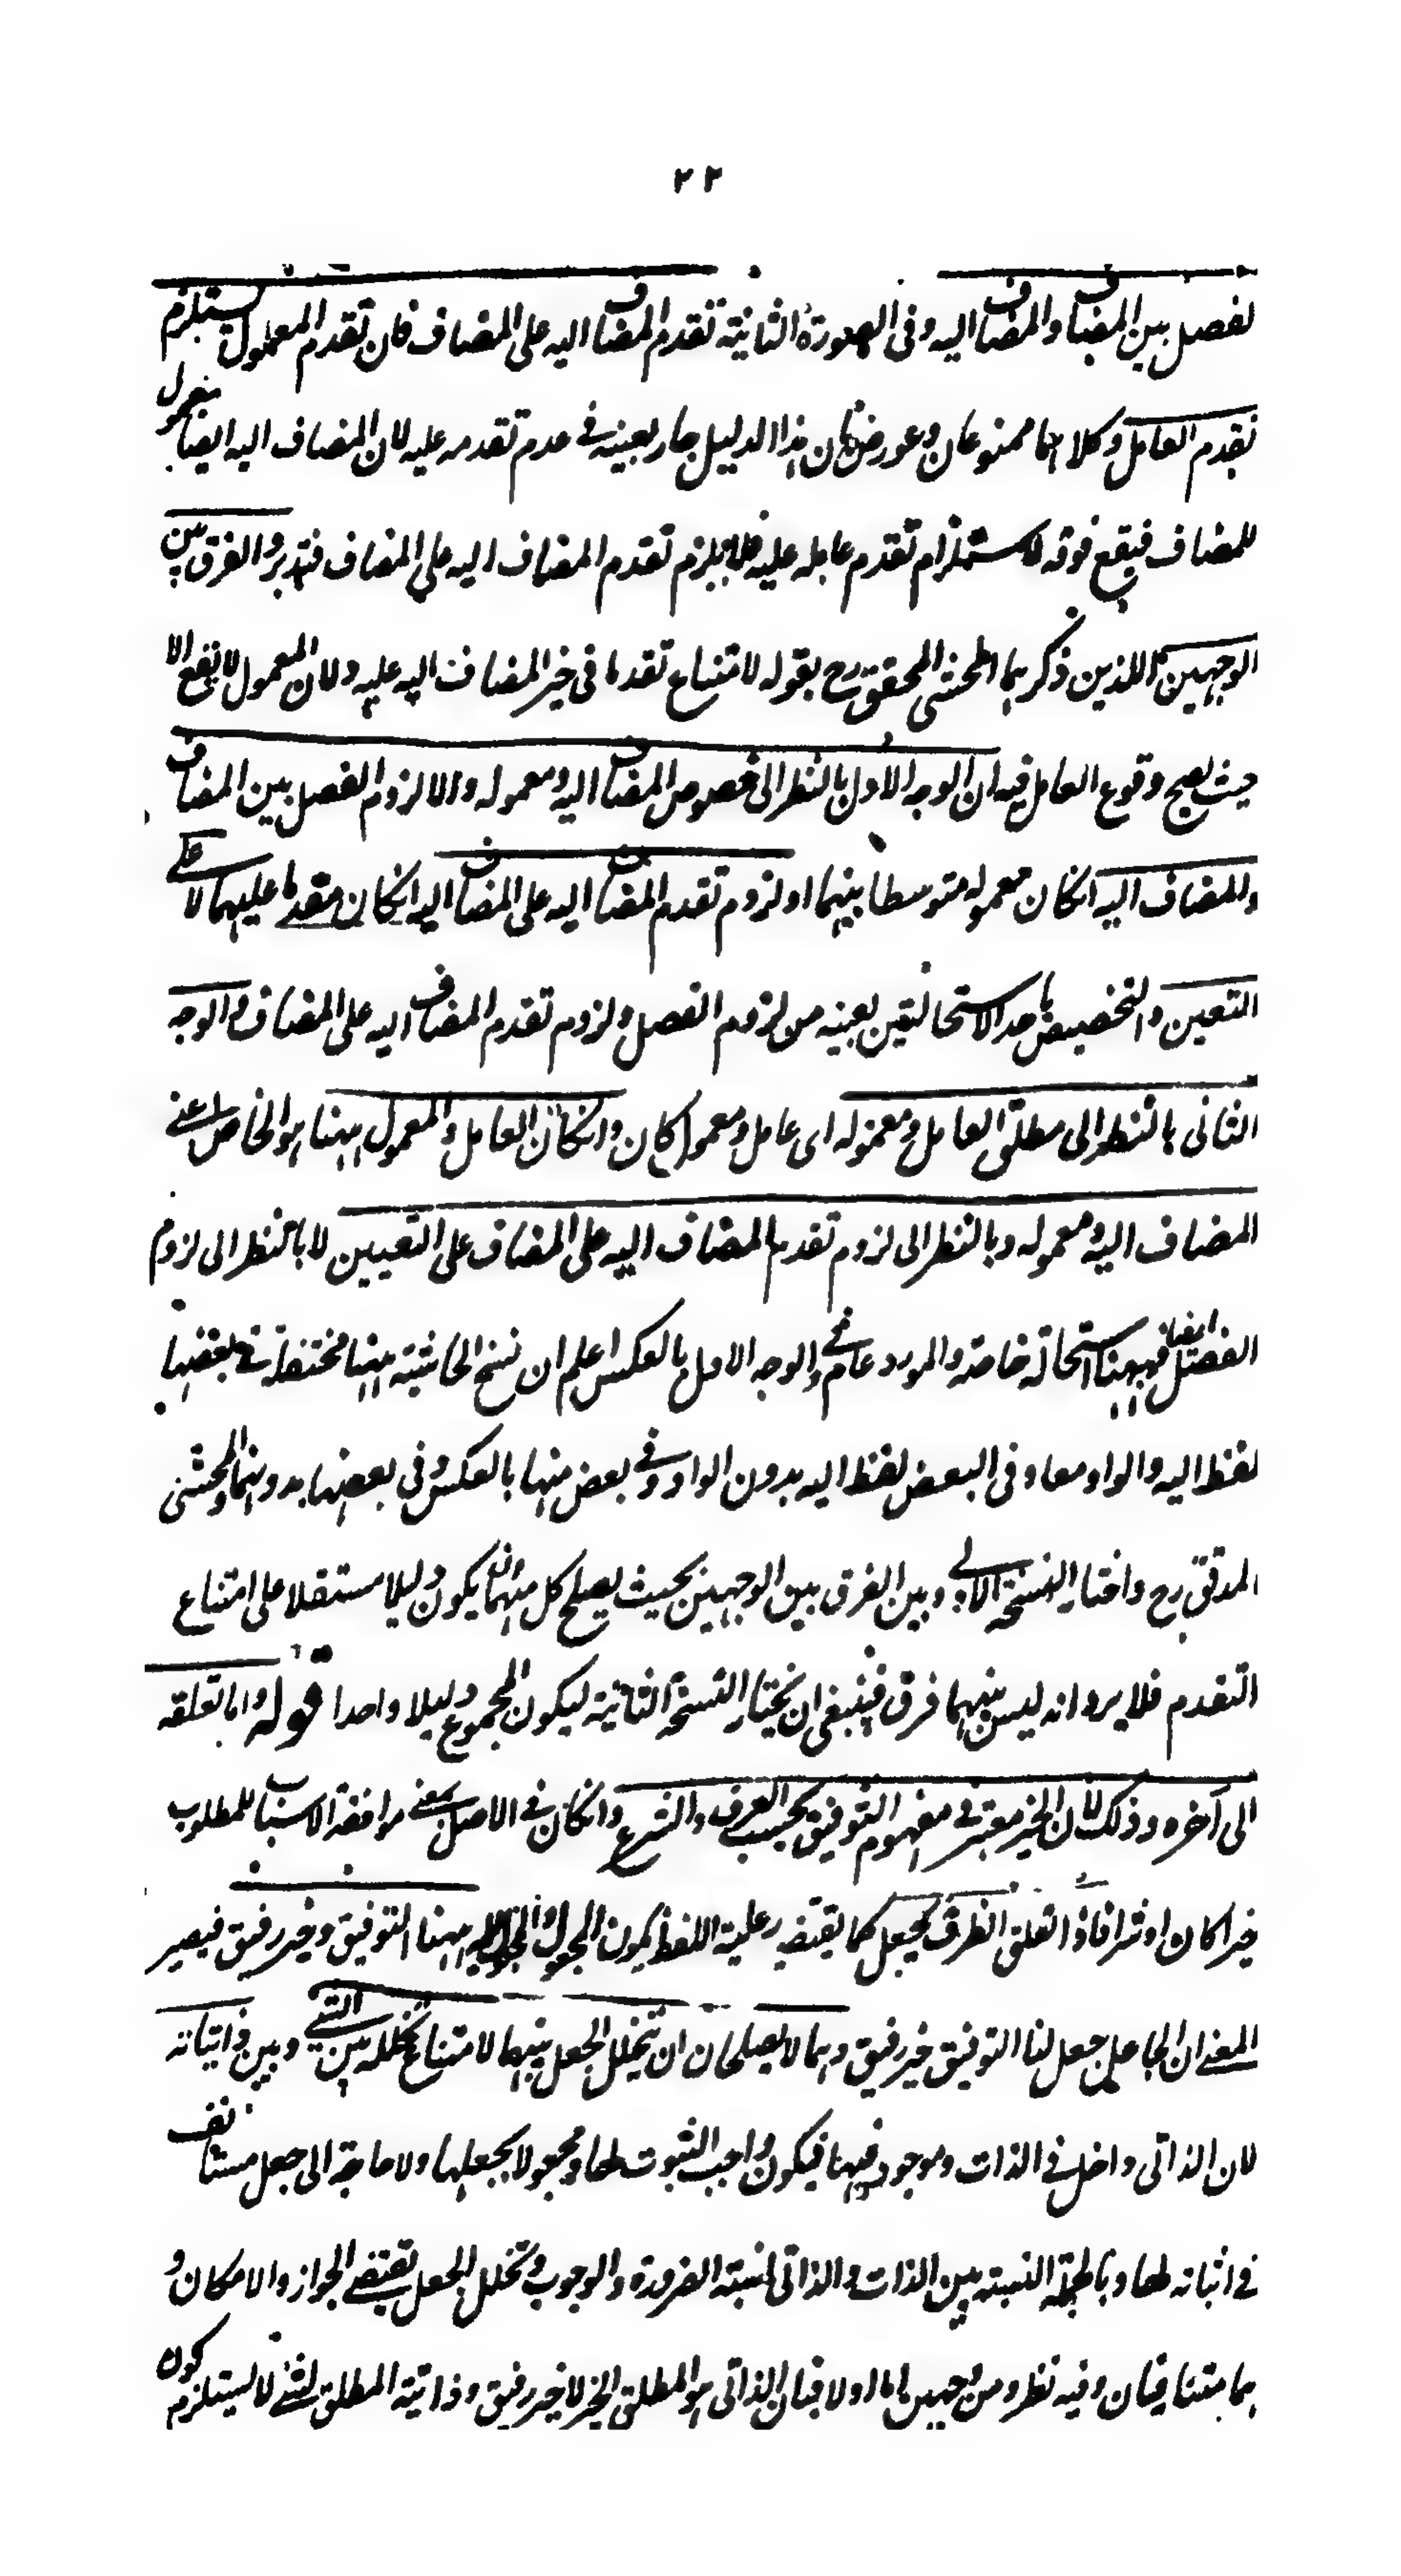 ٢٢
لفصل بين المضاف والمضاف اليه وفى الصورة الثانية تقدم المضاف اليه على المضاف فان تقدم المعمول يستلزم
تقدم العامل وكلاهما ممنوعان وعورض بان هذا الدليل جار بعينه فى عدم تقدمه عليه لان المضاف اليه ايضا معمول
للمضاف فيقع فوقه لاستلزام تقدم عامله عليه فلا يلزم تقدم المضاف اليه على المضاف فتدبر والفرق بين
الوجهين اللذين ذكرهما المحشى المحقق رح بقوله لامتناع تقدم ما فى خير المضاف اليه عليه ولان المعمول لا يقع الا
حيث يصح وقوع العامل فيه ان الوجه الاول بالنظر الى خصوص المضاف اليه ومعموله والا لزوم الفصل بين المضاف
والمضاف اليه انكان معموله متوسطا بينهما او لزوم تقدم المضاف اليه على المضاف اليه انكان مقدما عليهما لا على
التعين والتخصيص باحد الاستحالتين بعينه من لزوم الفصل ولزوم تقدم المضاف اليه على المضاف والوجه
الثانى بالنظر الى مطلق العامل ومعموله اى عامل ومعمول كان وانكان العامل والمعمول ههنا هو الخاص اعنى
المضاف اليه ومعموله وبالنظر الى لزوم تقدم المضاف اليه على المضاف على التعيين لا بالنظر الى لزوم
الفصل ايضا فههنا استحالة خاصة والمورد عام وفى الوجه الاول بالعكس اعلم ان نسخ الحاشية ههنا مختلفة فى بعضها
لفظ اليه والواو معا وفى البعض لفظ اليه بدون الواو وفى بعض منها بالعكس وفى بعضها بدونهما والمحشى
المدقق رح واختار النسخة الاولى وبين الفرق بين الوجهين بحيث يصلح كل منهما ان يكون دليلا مستقلا على امتناع
التقدم فلا يرد انه ليس بينهما فرق فينبغى ان يختار النسخة الثانية ليكون المجموع دليلا واحدا قوله واما تعلقه
الى آخره وذلك لان الخير معتبر فى مفهوم التوفيق بحسب العرف والشرع وانكان فى الاصل بمعنى موافقة الاسباب للمطلوب
خيرا كان او شرا فاذا تعلق الظرف بجعل كما يقتضيه رعاية اللفظ يكون المجعول والمجعول اليه ههنا التوفيق وخير رفيق فيصير
المعنى ان الجاعل جعل لنا التوفيق خير رفيق وهما لا يصلحان ان يتخلل الجعل بينهما لامتناع تخلله بين الشئ وبين ذاتياته
لان الذاتى داخل فى الذات وموجود فيها فيكون واجب الثبوت لها ومجعولا بجعلها ولا حاجة الى جعل مستانف
فى اثباته لها وبالجملة النسبة بين الذات والذاتى نسبة الضرورة والوجوب وتخلل الجعل يقتضى الجواز والامكان و
هما متنافيان وفيه نظر ومن وجهين اما اولا فبان الذاتى هو المطلق الخير لا خير رفيق وذاتية المطلق لشئ لا يستلزم كون